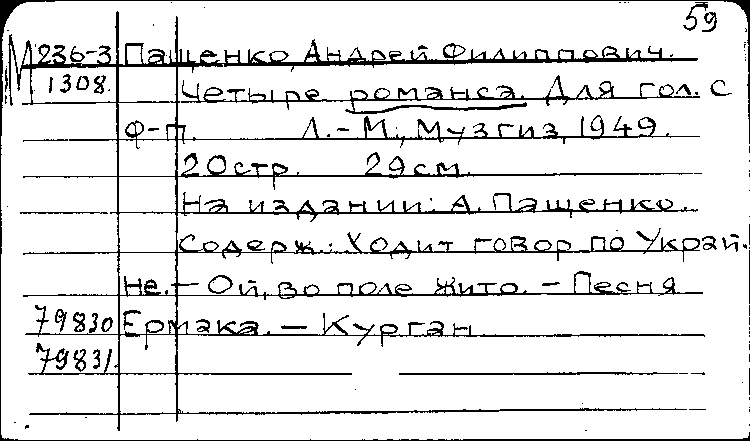 59
М 236-3 Пащенко, Андрей Филиппович.
1308. Четыре романса. Для гол. с
ф-п. Л.-М., Музгиз, 1949.
20стр. 29см.
На издании: А. Пащенко.
Содерж.: Ходит говор по Украй.
не. – Ой, во поле жито. – Песня
79830 Ермака. – Курган
79831.